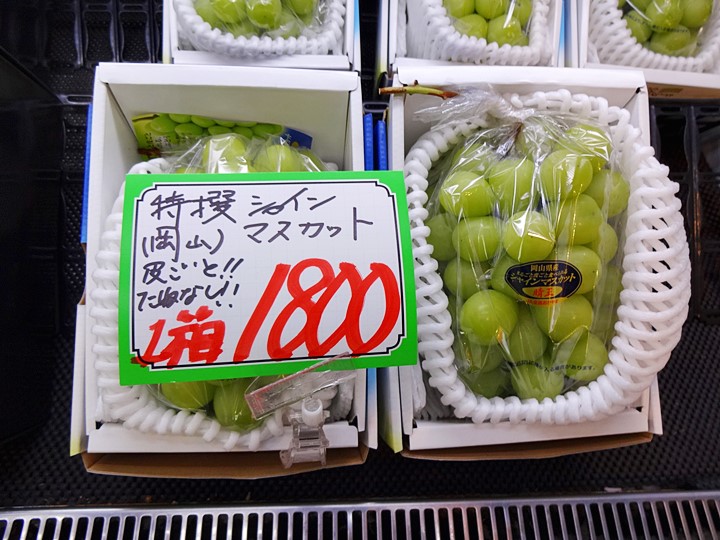 特撰 シャイン
(岡山) マスカット
皮ごと!!
たねなし!!
1箱 1800
岡山県産
シャインマスカット
晴王